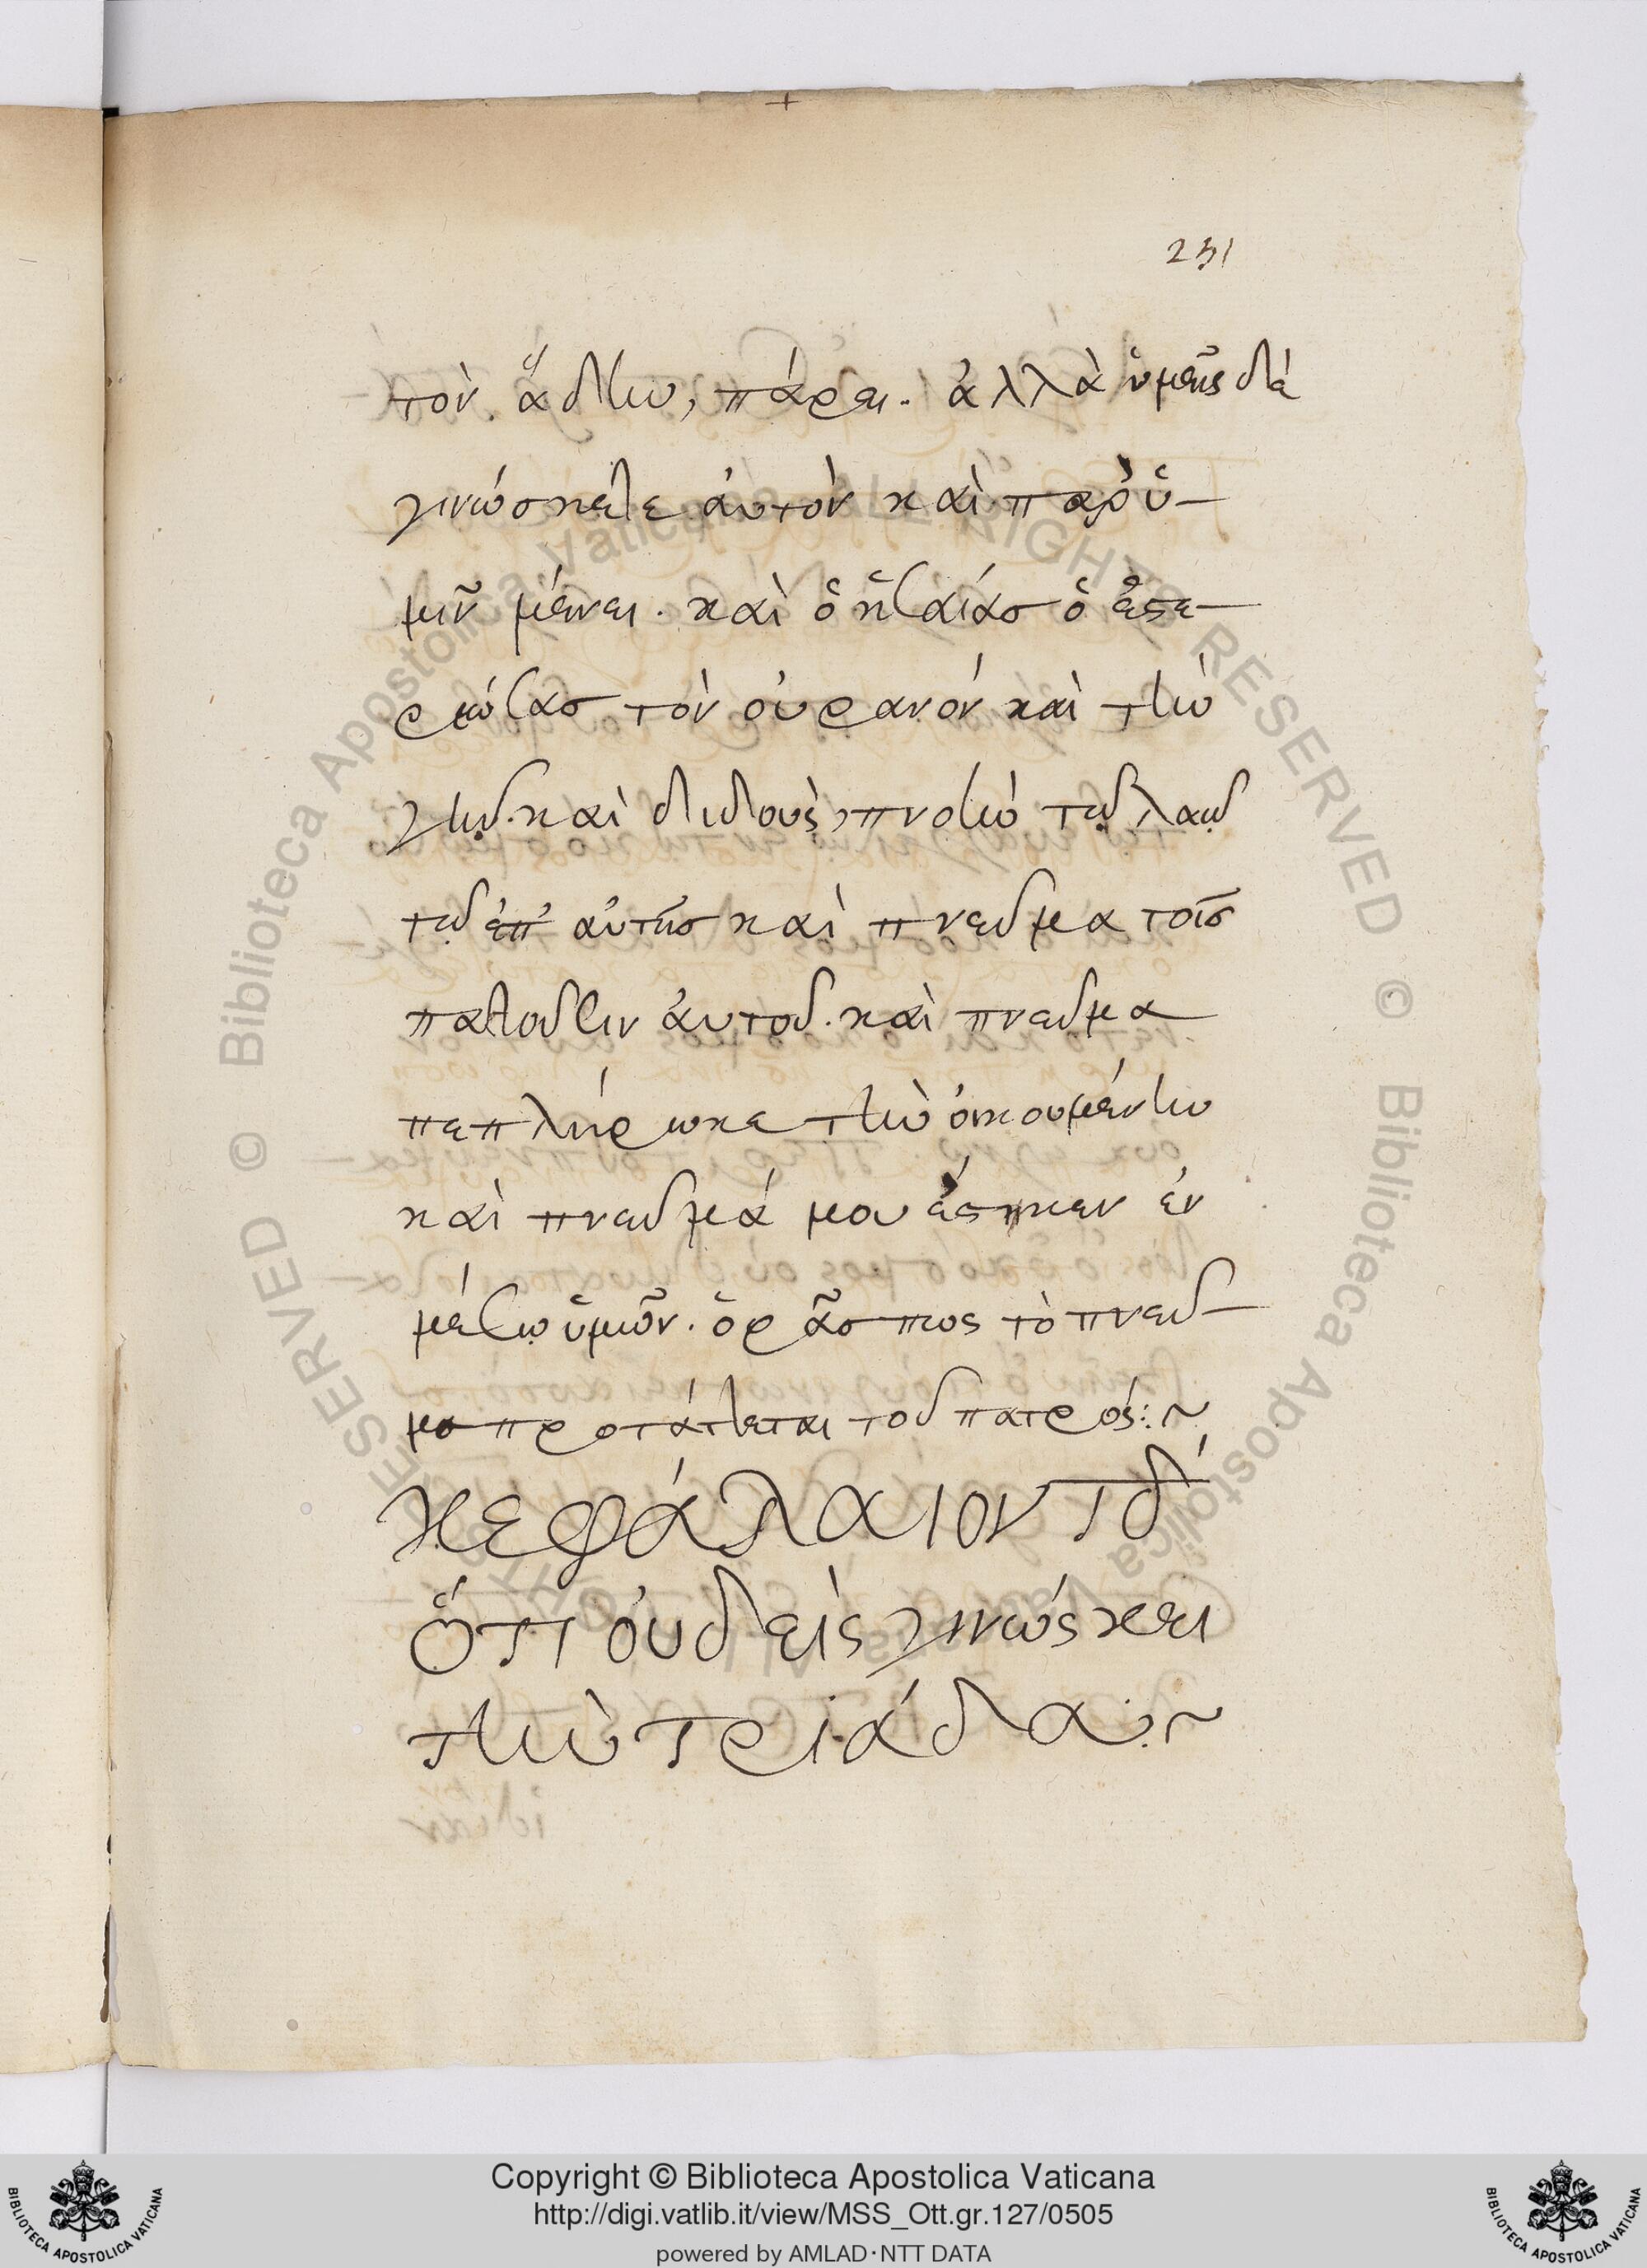 231
τὸν ἅδην, πάρει. ἀλλὰ ὑμεῖς δὲ
γινώσκετε ἀυτὸν καὶ παρ᾽ ὑ-
μῖν μένει. καὶ ὁ ἡσαίασ ὁ στε-
ρεώσασ τὸν οὐρανόν καὶ τὴν
γῆν. καὶ διδοὺς πνοὴν τῷ λαῷ
τῷ ἐπ᾽ αὐτῆσ καὶ πνεῦμα τοῖσ
πατοῦσιν ἀυτοῦ. καὶ πνεῦμα
πεπλήρωκε τὴν ὀικουμένην
καὶ πνεῦμά μου ἐστηκεν ἐν
μέσῳ ὑμῶν. ὁρᾶσ πως τὸ πνεῦ-
μα προτάττεται τοῦ πατρός:~
κεφάλαιον τδ
ὅτι ὀυδεὶς γινώσκει
τὴν τριάδα:~
Copyright © Biblioteca Apostolica Vaticana
http://digi.vatlib.it/view/MSS_Ott.gr.127/0505
powered by AMLAD·NTT DATA
BIBLIOTECA APOSTOLICA VATICANA
BIBLIOTECA APOSTOLICA VATICANA